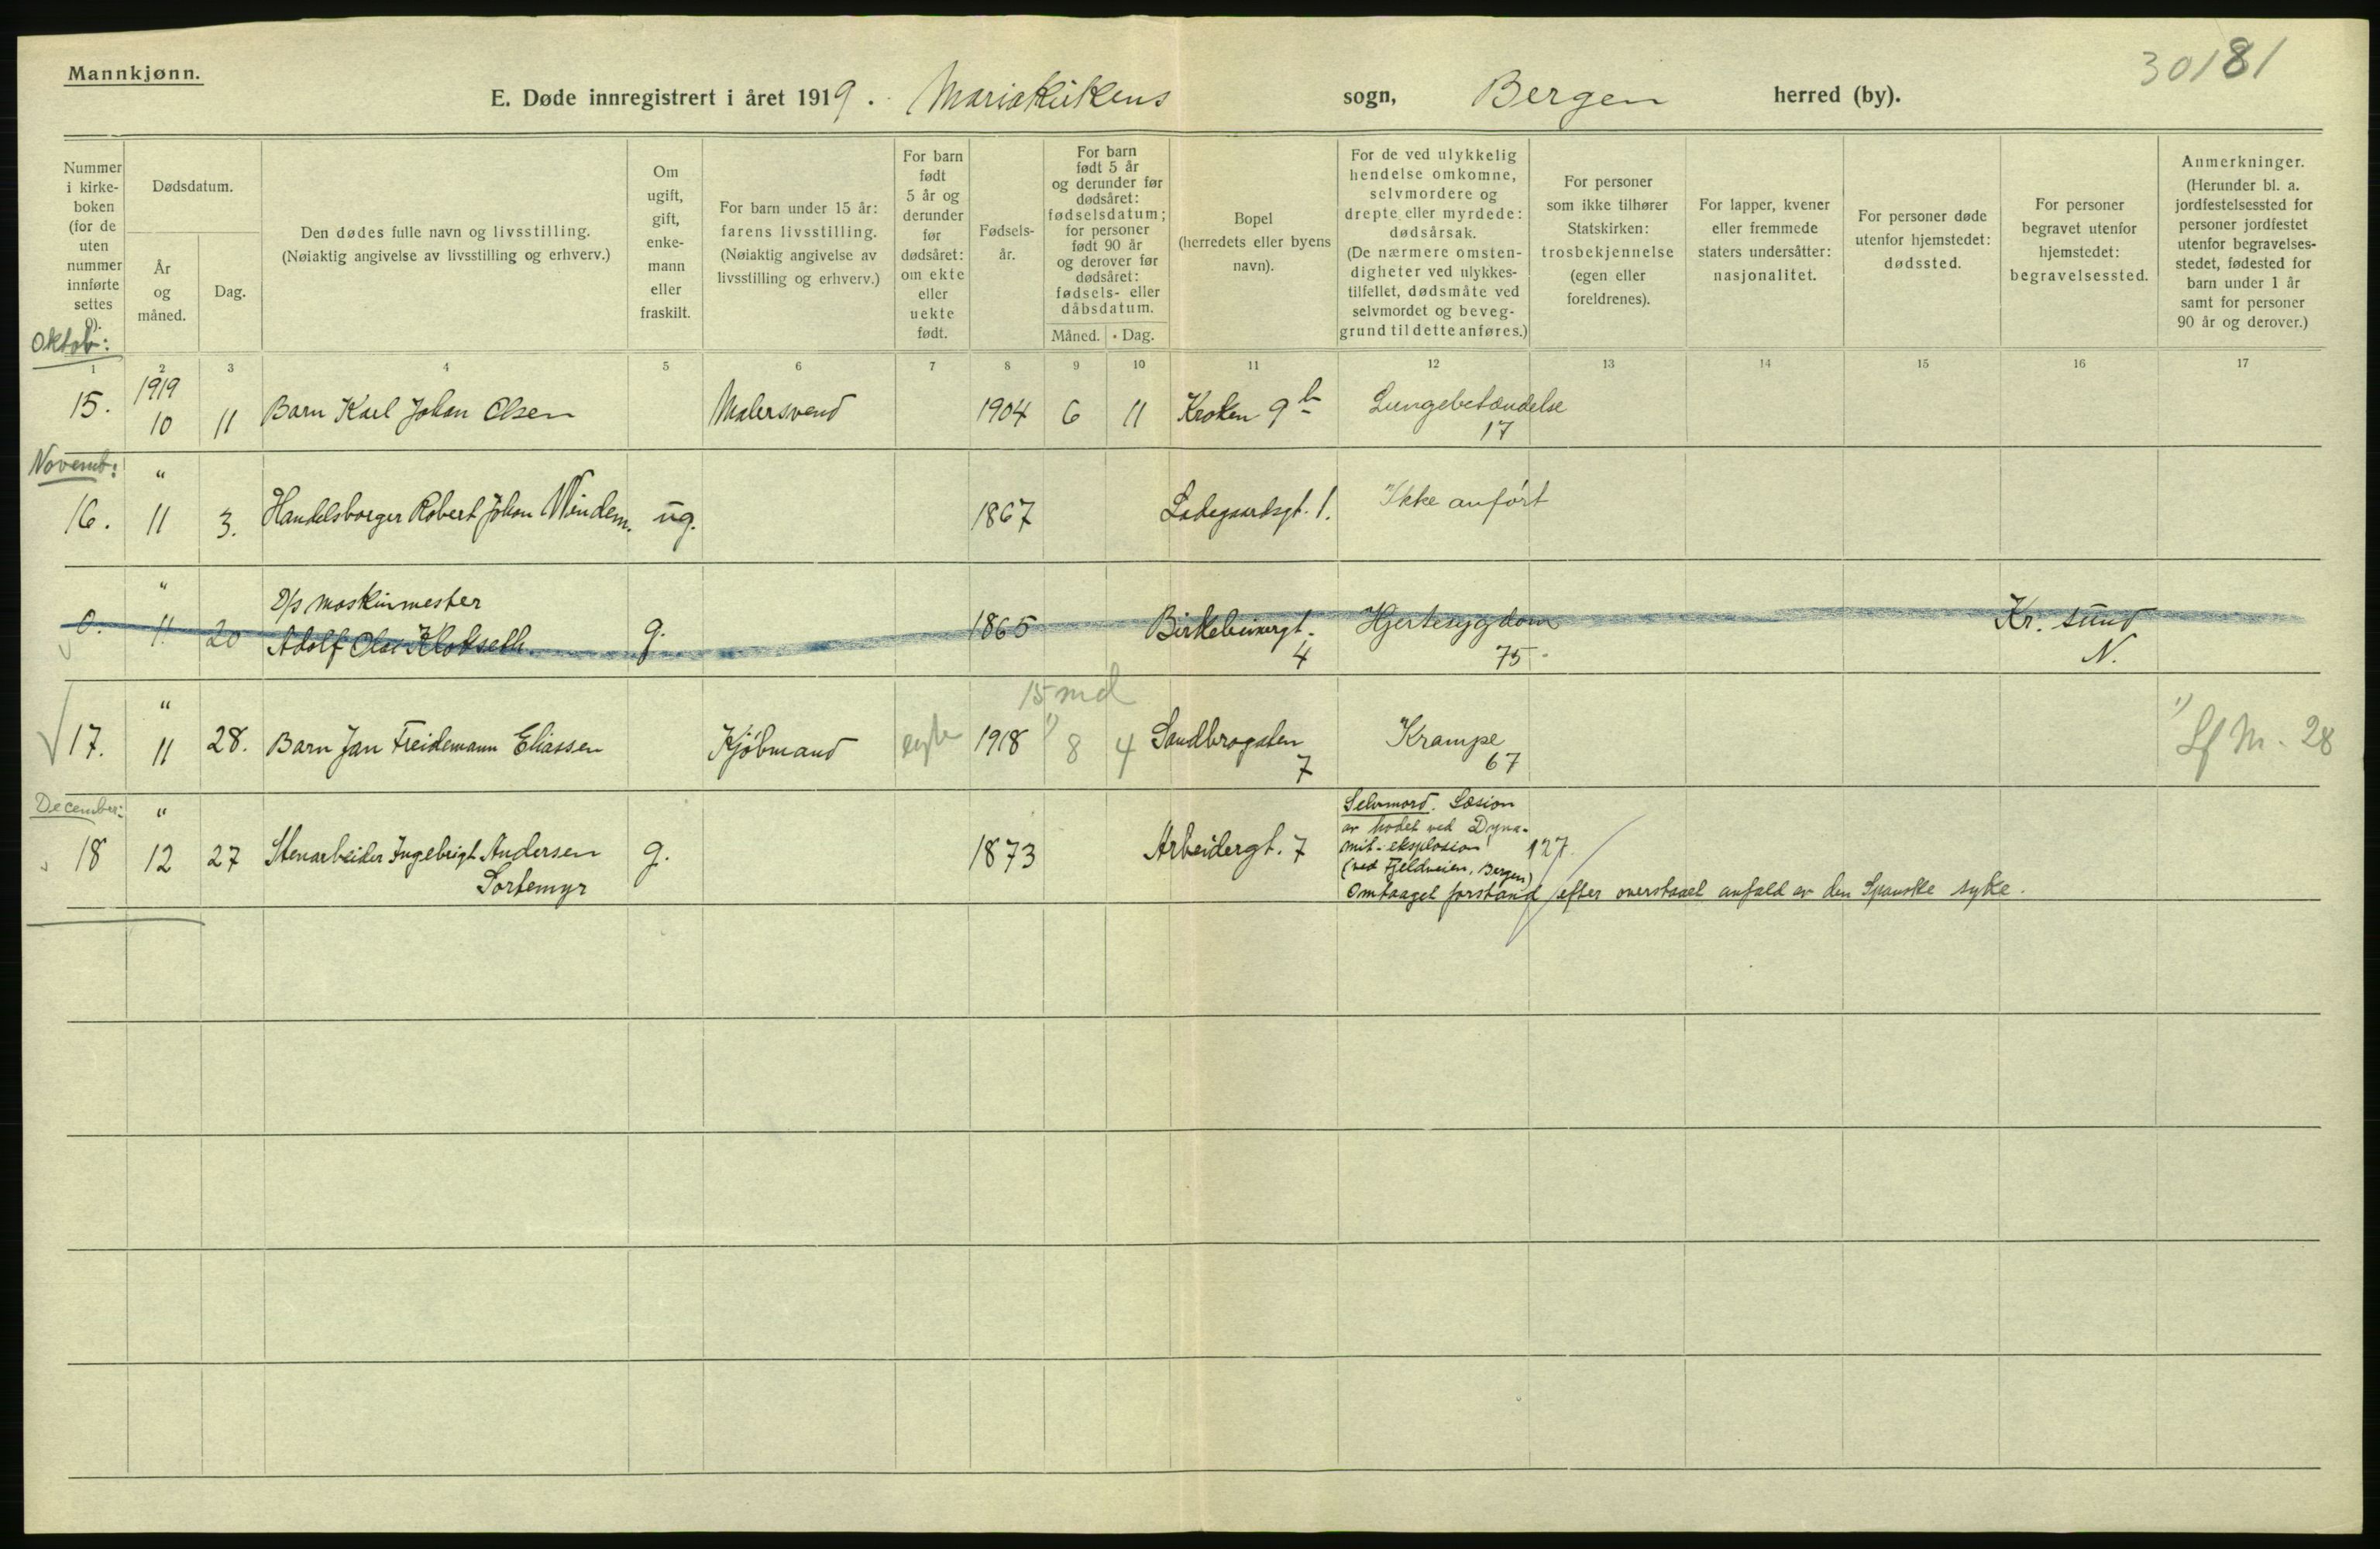 Mannkjønn.
30181
E. Døde innregistrert i året 1919. Mariakirkens sogn, Bergen herred (by).
Nummer i kirkeboken (for de uten nummer innførte settes 0).
Dødsdatum.
År og måned.
Dag.
Den dødes fulle navn og livsstilling.
(Nøiaktig angivelse av livsstilling og erhverv.)
Om ugift, gift, enkemann eller fraskilt.
For barn under 15 år: farens livsstilling.
(Nøiaktig angivelse av livsstilling og erhverv.)
For barn født 5 år og derunder før dødsåret: om ekte eller uekte født.
Fødselsår.
For barn født 5 år og derunder før dødsåret: fødselsdatum; for personer født 90 år og derover før dødsåret: fødsels- eller dåbsdatum.
Måned.
Dag.
Bopel
(herredets eller byens navn).
For de ved ulykkelig hendelse omkomne, selvmordere og drepte eller myrdede: dødsårsak.
(De nærmere omstendigheter ved ulykkestilfellet, dødsmåte ved selvmordet og beveggrund til dette anføres.)
For personer som ikke tilhører Statskirken: trosbekjennelse (egen eller foreldrenes).
For lapper, kvener eller fremmede staters undersåtter: nasjonalitet.
For personer døde utenfor hjemstedet: dødssted.
For personer begravet utenfor hjemstedet: begravelsessted.
Anmerkninger.
(Herunder bl. a. jordfestelsessted for personer jordfestet utenfor begravelsesstedet, fødested for barn under 1 år samt for personer 90 år og derover.)
1 2 3 4 5 6 7 8 9 10 11 12 13 14 15 16 17
Oktob:
15. 1919 10 11 Barn Karl Johan Olsen Malersvend 1904 6 11 Kroken 9 b Lungebetændelse 17
Novemb:
16. " 11 3. Handelsborger Robert Johan Windem. ug. 1867 Ladegaardsgt. 1. Ikke anført
0. " 11 20 D/s Maskinmester
Adolf Olai Klokseth g. 1865 Birkebeinergt. 4 Hjertesygdom 75 Kr. sund N.
15 md
17. " 11 28. Barn Jan Freidemann Eliassen Kjøbmand egte 1918 1) 8 4 Sandbrogaten 7 Krampe 67 1) Lf M. 28
December:
18 " 12 27 Stenarbeider Ingebrigt Andersen
Sortemyr g. 1873 Arbeidergt. 7
Selvmord. Læsion
av hodet ved Dyna-
mit-eksplosion 127.
(ved Fjeldveien, Bergen)
Omtaaget forstand efter overstaaet anfald av den Spanske syke.